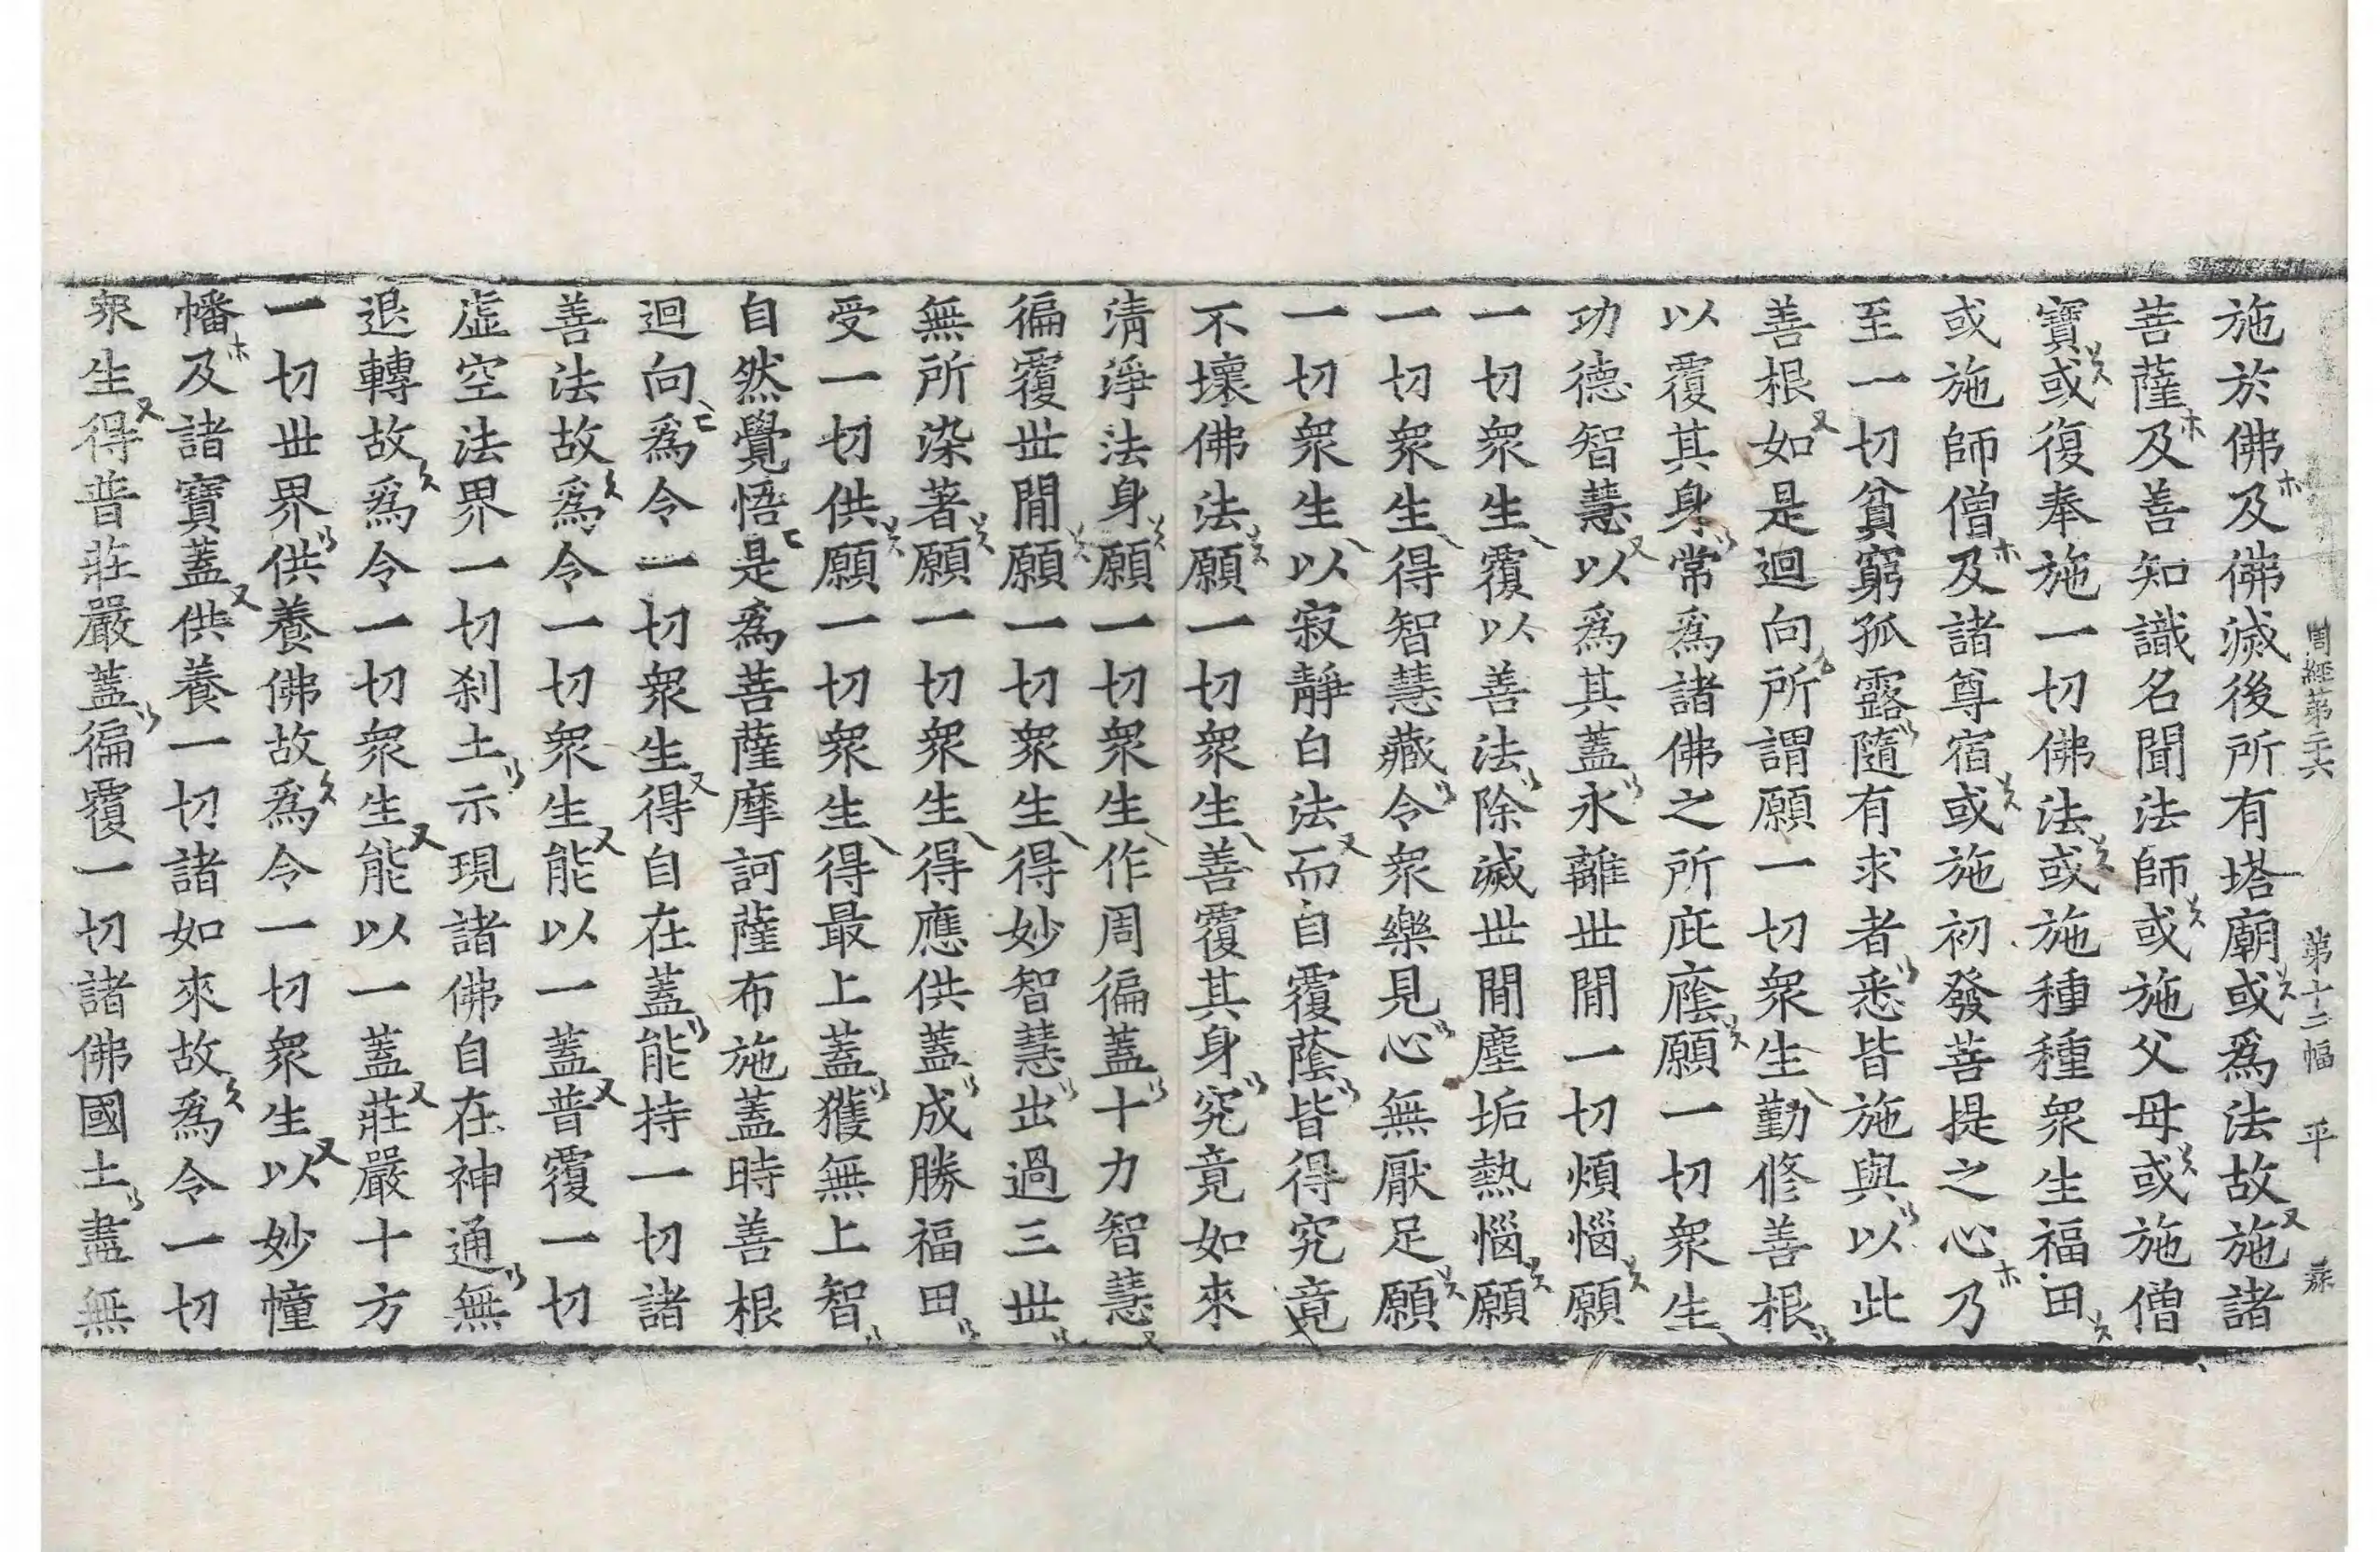 周經第二十六 第十二幅 平
施於佛及佛滅後所有塔廟或爲法故施諸
菩薩及善知識名聞法師或施父母或施僧
寶或復奉施一切佛法或施種種衆生福田
或施師僧及諸尊宿或施初發菩提之心乃
至一切貧窮孤露隨有求者悉皆施與以此
善根如是迴向所謂願一切衆生勤修善根
以覆其身常爲諸佛之所庇廕願一切衆生
功德智慧以爲其蓋永離世間一切煩惱願
一切衆生覆以善法除滅世間塵垢熱惱願
一切衆生得智慧藏令衆樂見心無厭足願
一切衆生以寂靜白法而自覆蔭皆得究竟
不壞佛法願一切衆生善覆其身究竟如來
淸淨法身願一切衆生作周徧蓋十力智慧
徧覆世間願一切衆生得妙智慧出過三世
無所染著願一切衆生得應供蓋成勝福田
受一切供願一切衆生得最上蓋獲無上智
自然覺悟是爲菩薩摩訶薩布施蓋時善根
迴向爲令一切衆生得自在蓋能持一切諸
善法故爲令一切衆生能以一蓋普覆一切
虛空法界一切刹土示現諸佛自在神通無
退轉故爲令一切衆生能以一蓋莊嚴十方
一切世界供養佛故爲令一切衆生以妙幢
幡及諸寶蓋供養一切諸如來故爲令一切
衆生得普莊嚴蓋徧覆一切諸佛國土盡無